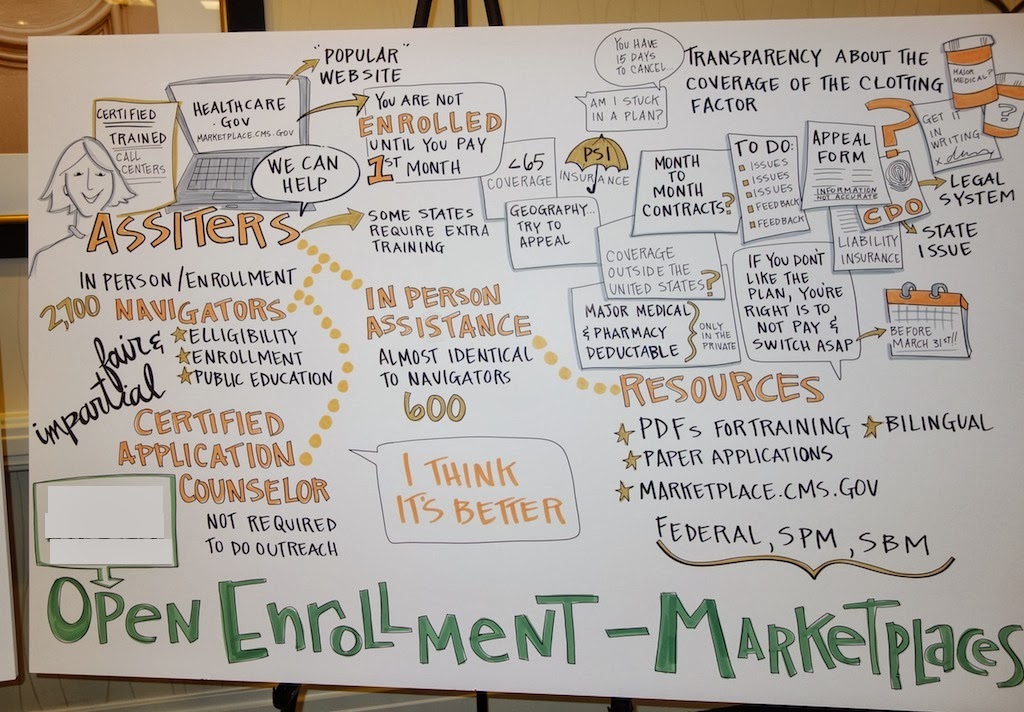 "POPULAR"
WEBSITE
CERTIFIED
TRAINED
CALL
CENTERS
HEALTHCARE
.GOV
MARKETPLACE.CMS.GOV
WE CAN
HELP
YOU ARE NOT
ENROLLED
UNTIL YOU PAY
1ST MONTH
SOME STATES
REQUIRE EXTRA
TRAINING
ASSITERS
IN PERSON/ENROLLMENT
2,700 NAVIGATORS
ELLIGIBILITY
ENROLLMENT
PUBLIC EDUCATION
fair &
impartial
CERTIFIED
APPLICATION
COUNSELOR
NOT REQUIRED
TO DO OUTREACH
IN PERSON
ASSISTANCE
ALMOST IDENTICAL
TO NAVIGATORS
600
I THINK
IT'S BETTER
YOU HAVE
15 DAYS
TO CANCEL...
AM I STUCK
IN A PLAN?
TRANSPARENCY ABOUT THE
COVERAGE OF THE CLOTTING
FACTOR
MAJOR
MEDICAL?
?
<65
COVERAGE
PSI
INSURANCE
GEOGRAPHY...
TRY TO
APPEAL
MONTH
TO
MONTH
CONTRACTS?
TO DO:
ISSUES
ISSUES
ISSUES
FEEDBACK
FEEDBACK
APPEAL
FORM
INFORMATION
NOT ACCURATE
?
GET IT
IN
WRITING
CDO
LEGAL
SYSTEM
STATE
ISSUE
LIABILITY
INSURANCE
COVERAGE
OUTSIDE THE
UNITED STATES?
MAJOR MEDICAL
& PHARMACY
DEDUCTABLE
ONLY
IN THE
PRIVATE
IF YOU DON'T
LIKE THE
PLAN, YOU'RE
RIGHT IS TO
NOT PAY &
SWITCH ASAP
BEFORE
MARCH 31ST!!
RESOURCES
PDFS FOR TRAINING
BILINGUAL
PAPER APPLICATIONS
MARKETPLACE.CMS.GOV
FEDERAL, SPM, SBM
OPEN ENROLLMENT - MARKETPLACES